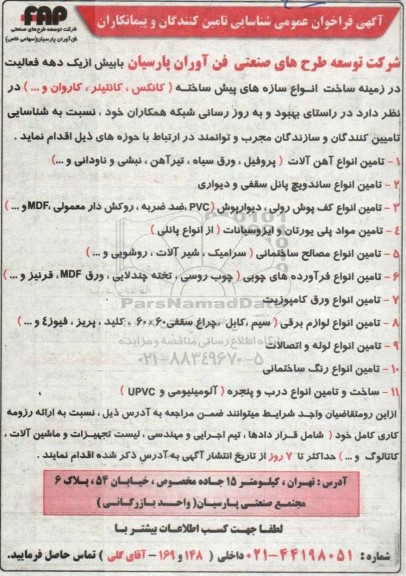 آگهی فراخوان عمومی شناسایی تامین کنندگان و پیمانکاران
FAP
شرکت توسعه طرح های صنعتی
فن آوران پارسیان (سهامی خاص)
شرکت توسعه طرح های صنعتی فن آوران پارسیان بابیش ازیک دهه فعالیت
در زمینه ساخت انواع سازه های پیش ساخته ( کانکس ، کانتینر ، کاروان و ... ) در
نظر دارد در راستای بهبود و به روز رسانی شبکه همکاران خود ، نسبت به شناسایی
تامیین کنندگان و سازندگان مجرب و توانمند در ارتباط با حوزه های ذیل اقدام نماید .
۱ - تامین انواع آهن آلات ( پروفیل ، ورق سیاه ، تیرآهن ، نبشی و ناودانی و ...)
۲ - تامین انواع ساندویچ پانل سقفی و دیواری
۳ - تامین انواع کف پوش رولی ، دیوارپوش (PVC ،ضد ضربه ، روکش دار معمولی ،MDFو ... )
۴ - تامین مواد پلی یورتان و ایزوسیانات ( از انواع پانلی )
۵ - تامین انواع مصالح ساختمانی ( سرامیک ، شیر آلات ، روشویی و ... )
۶ - تامین انواع فرآورده های چوبی ( چوب روسی ، تخته چندلایی ، ورق MDF ، قرنیز و ... )
۷ - تامین انواع ورق کامپوزیت
ParsNamadData
۸ - تامین انواع لوازم برقی ( سیم ،کابل ،چراغ سقفی ۶۰×۶۰ ، کلید ، پریز ، فیوز و ... )
پایگاه اطلاع رسانی مناقصه و مزایده
۹ - تامین انواع لوله و اتصالات
۰۲۱-۸۸۳۴۹۶۷۰-۵
۱۰ - تامین انواع رنگ ساختمانی
۱۱ - ساخت و تامین انواع درب و پنجره ( آلومینیومی و UPVC )
ازاین رومتقاضیان واجد شرایط میتوانند ضمن مراجعه به آدرس ذیل ، نسبت به ارائه رزومه
کاری کامل خود ( شامل قرار دادها ، تیم اجرایی و مهندسی ، لیست تجهیزات و ماشین آلات ،
کاتالوگ و ... ) حداکثر تا ۷ روز از تاریخ انتشار آگهی به آدرس ذکر شده اقدام نمایند .
آدرس : تهران ، کیلومتر ۱۵ جاده مخصوص ، خیابان ۵۴ ، پلاک ۶
مجتمع صنعتی پارسیان( واحد بازرگانی )
لطفا جهت کسب اطلاعات بیشتر با
شماره : ۴۴۱۹۸۰۵۱-۰۲۱ داخلی ( ۱۴۸ و ۱۶۹ - آقای گلی ) تماس حاصل فرمایید.